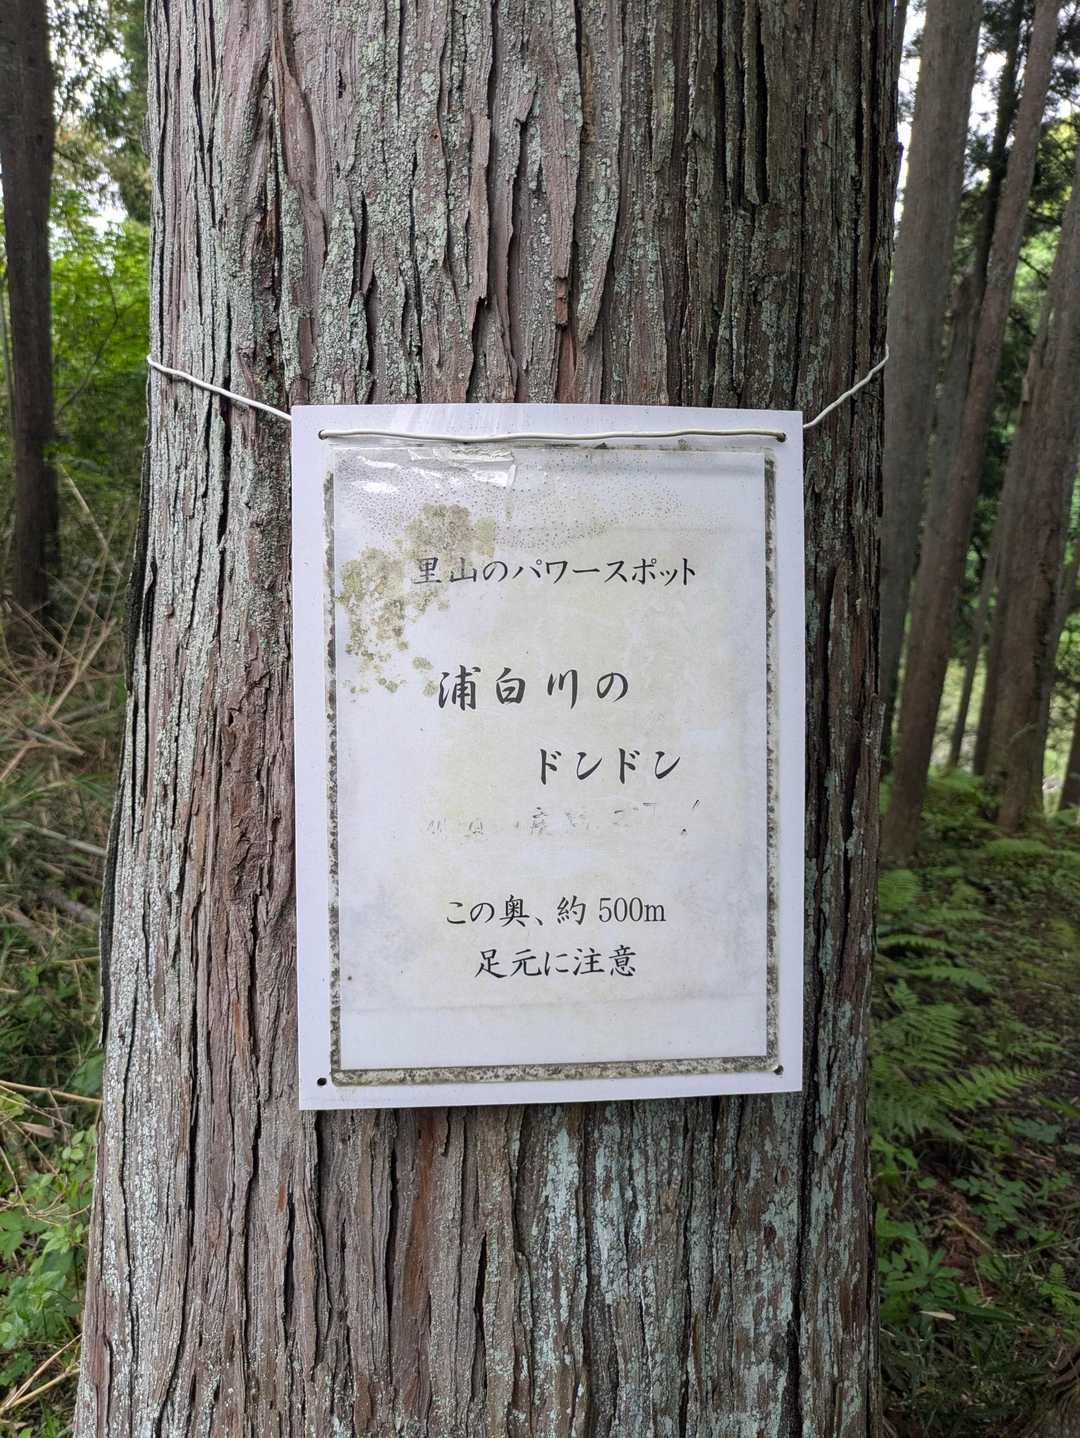 里山のパワースポット
浦白川の
ドンドン
この奥、約500m
足元に注意